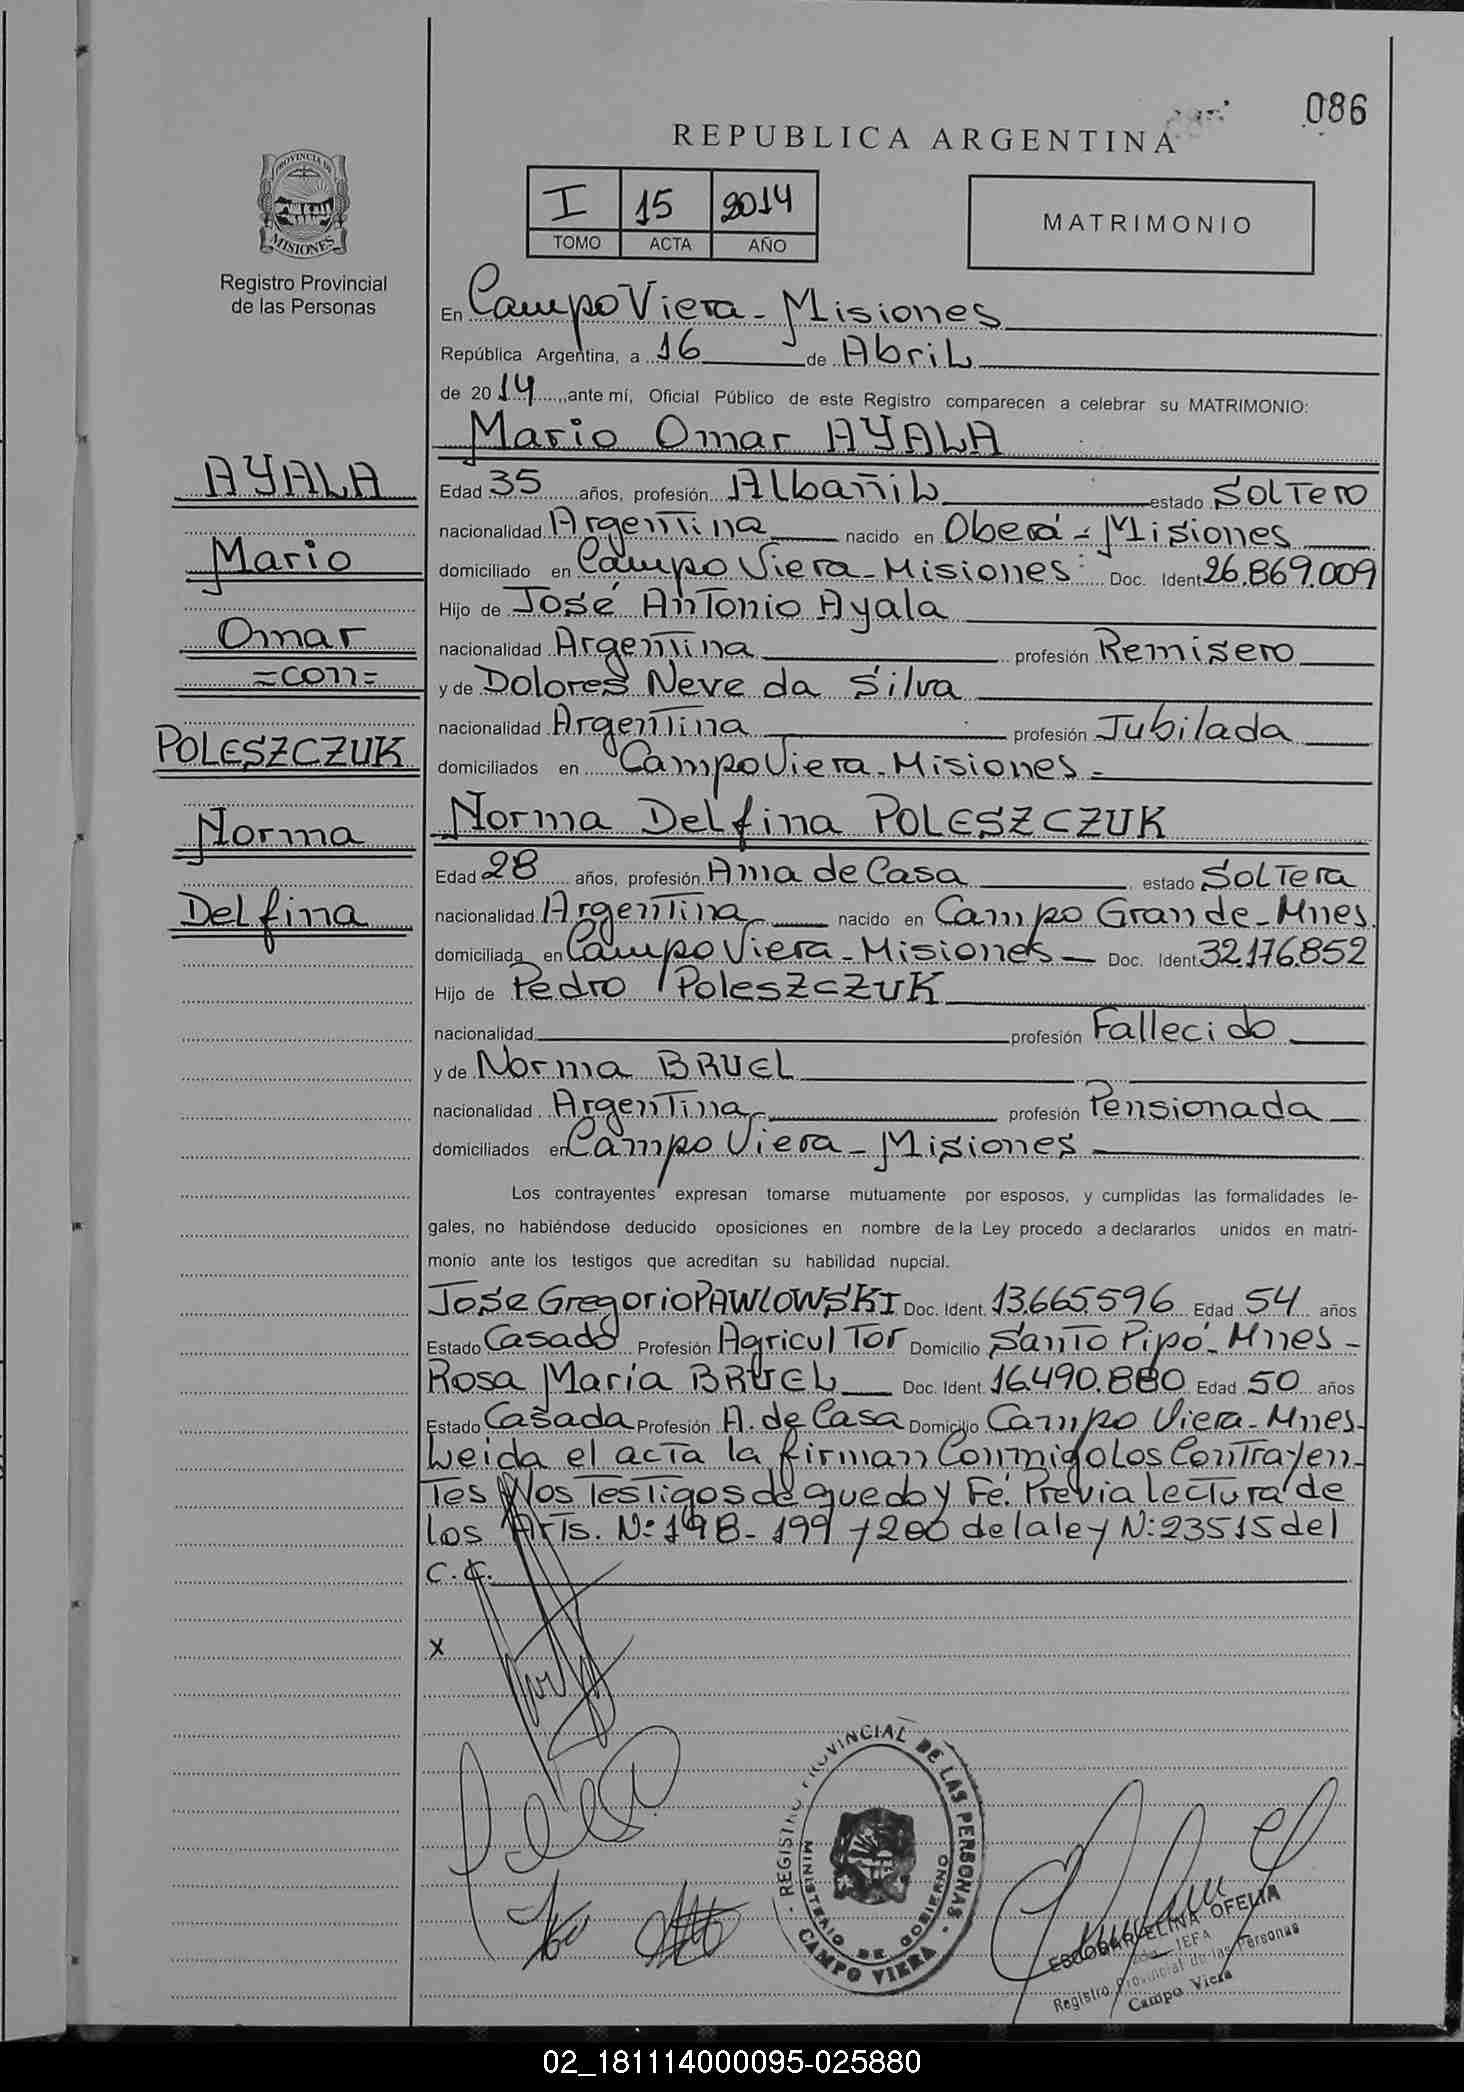 086
REPUBLICA ARGENTINA
PROVINCIA DE
MISIONES
Registro Provincial
de las Personas
I 15 2014
TOMO ACTA AÑO
MATRIMONIO
En Campo Viera - Misiones
República Argentina, a 16 de Abril
de 2014 ante mí, Oficial Público de este Registro comparecen a celebrar su MATRIMONIO:
Mario Omar AYALA
AYALA
Mario
Omar
=con=
POLESZCZUK
Norma
Delfina
Edad 35 años, profesión Albañil estado Soltero
nacionalidad Argentina nacido en Oberá - Misiones
domiciliado en Campo Viera - Misiones Doc. Ident 26.869.009
Hijo de José Antonio Ayala
nacionalidad Argentina profesión Remisero
y de Dolores Neve da Silva
nacionalidad Argentina profesión Jubilada
domiciliados en Campo Viera - Misiones -
Norma Delfina POLESZCZUK
Edad 28 años, profesión Ama de Casa estado Soltera
nacionalidad Argentina nacido en Campo Grande - Mnes.
domiciliada en Campo Viera - Misiones - Doc. Ident. 32.176.852
Hijo de Pedro Poleszczuk
nacionalidad profesión Fallecido
y de Norma BRUEL
nacionalidad Argentina profesión Pensionada
domiciliados en Campo Viera - Misiones
Los contrayentes expresan tomarse mutuamente por esposos, y cumplidas las formalidades le-
gales, no habiéndose deducido oposiciones en nombre de la Ley procedo a declararlos unidos en matri-
monio ante los testigos que acreditan su habilidad nupcial.
Jose Gregorio PAWLOWSKI Doc. Ident. 13.665.596 Edad 54 años
Estado Casado Profesión Agricultor Domicilio Santo Pipó - Mnes -
Rosa María BRUEL Doc. Ident. 16.490.880 Edad 50 años
Estado Casada Profesión A. de Casa Domicilio Campo Viera - Mnes -
Leida el acta la firman Conmigo Los Contrayen-
tes y los Testigos de que doy Fé. Previa lectura de
los Arts. Nº 198 - 199 y 200 de la ley Nº 23515 del
C.C.
X
REGISTRO PROVINCIAL DE LAS PERSONAS
MINISTERIO DE GOBIERNO
CAMPO VIERA
ESCOBAR ELINA OFELIA
JEFA
Registro Provincial de las Personas
Campo Viera
02_181114000095-025880